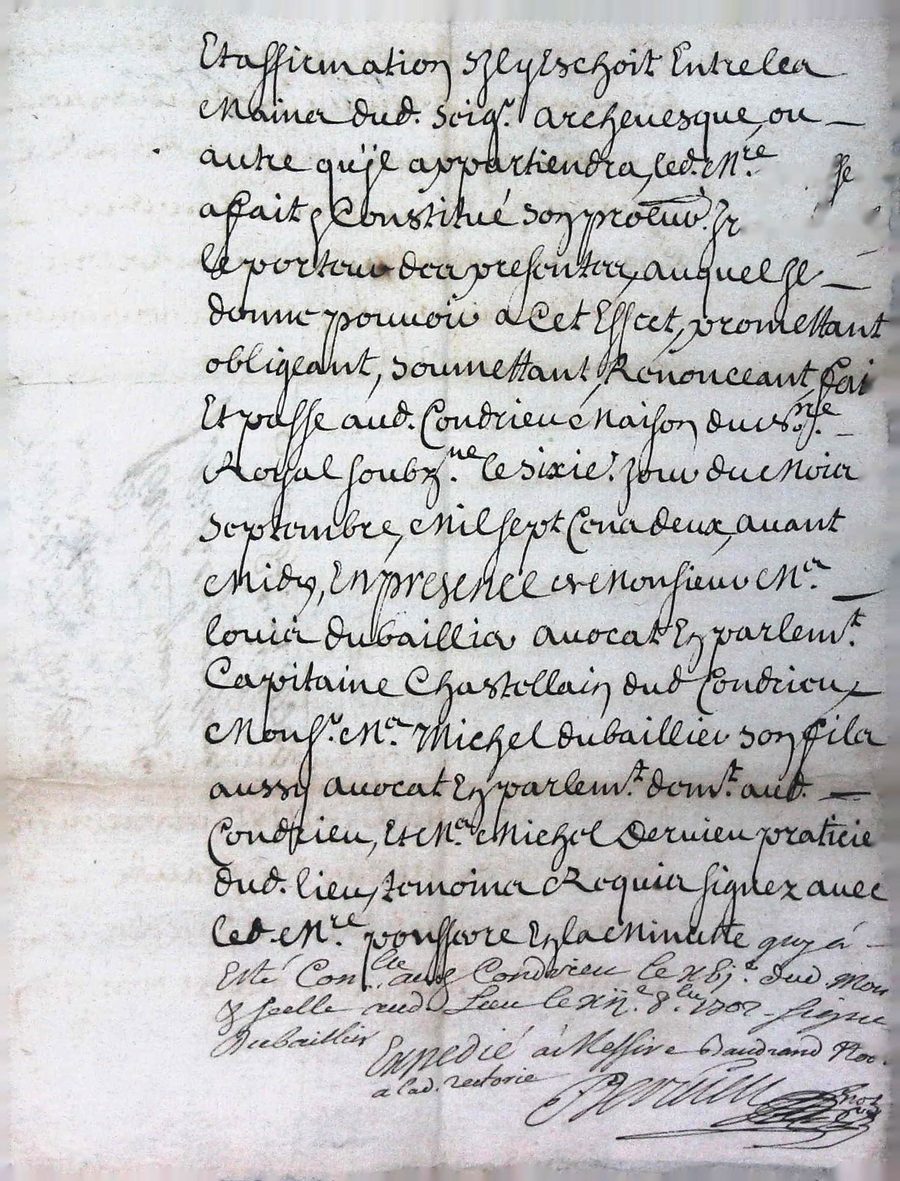 Et affirmation sy ly Eschoit Entre les
Mains dud. Seigr. archevesque, ou
autre qu'jl appartiendra, led. Mre
a fait & Constitué son procur.
le porteur des presentes, auquel Jl
donne pouvoir a Cet Effect, promettant
obligeant, soumettant, Renonceant, fai
Et passé aud. Condrieu Maison du nore.
Royal soubzne. le sixie. Jour du Mois
Septembre, Mil sept Cens deux, avant
Midy, En presence de Monsieur Me.
louis dubaillier avocat En parlemt.
Capitaine Chastellain dud Condrieu,
Monsr. Me. Michel dubaillier son fils
aussy avocat En parlemt. demt. aud.
Condrieu, Et Me. Michel Dervieu praticie
dud. lieu, temoins Requis signez avec
led. Mre. En la Minutte quy à
Esté Conlle. aud Condrieu le dud. Mois
& scellé aud. Lieu le xii. 8bre. 1702 - signe
Dubaillier
Expedié à Messire Baudrand
a lad. rectorie
Dervieu